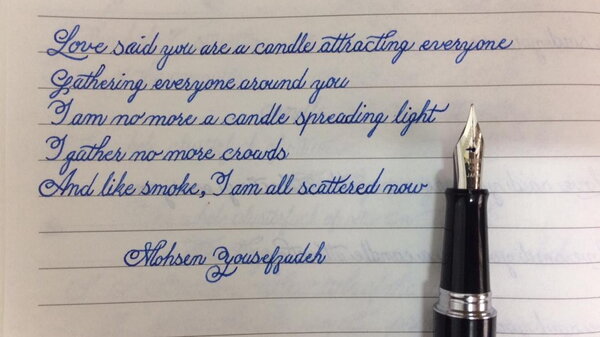 Love said you are a candle attracting everyone
Gathering everyone around you
I am no more a candle spreading light
I gather no more crowds
And like smoke, I am all scattered now
Mohsen Yousefzadeh